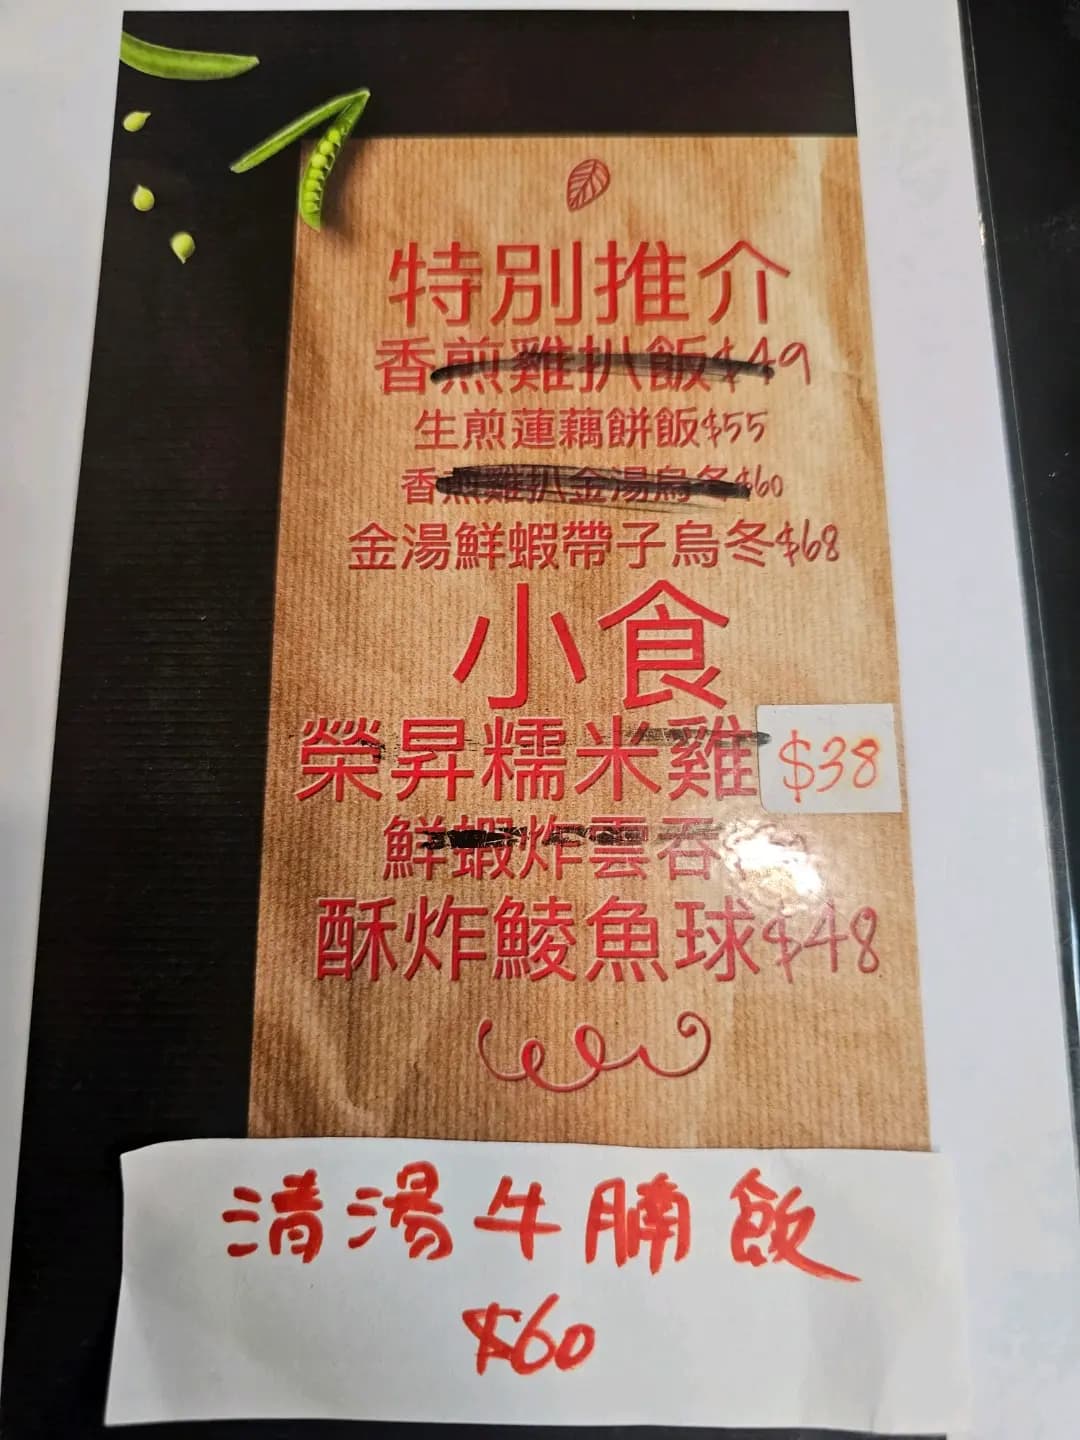 特別推介
香煎雞扒飯$49
生煎蓮藕餅飯$55
香煎雞扒金湯烏冬$60
金湯鮮蝦帶子烏冬$68
小食
榮昇糯米雞 $38
鮮蝦炸雲吞
酥炸鯪魚球$48
清湯牛腩飯
$60